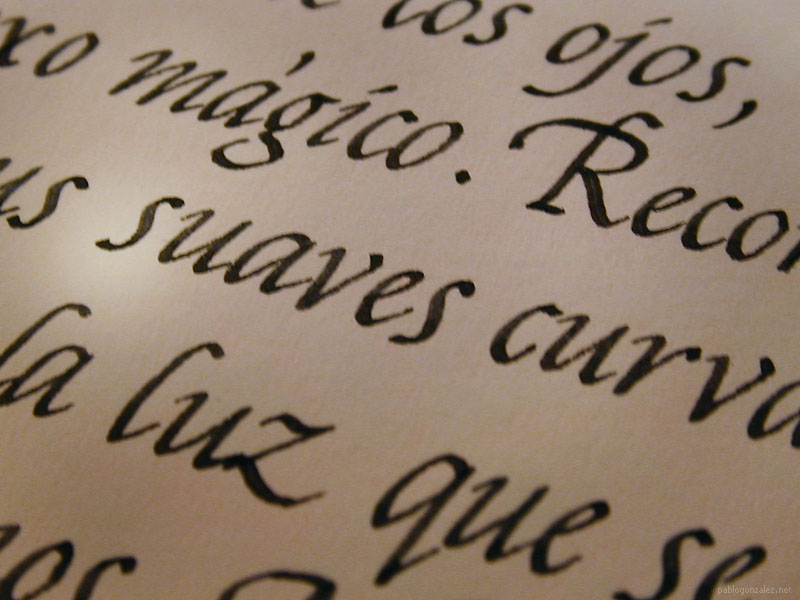 los ojos,
mágico. Reco
suaves curva
la luz que se
pablogonzalez.net